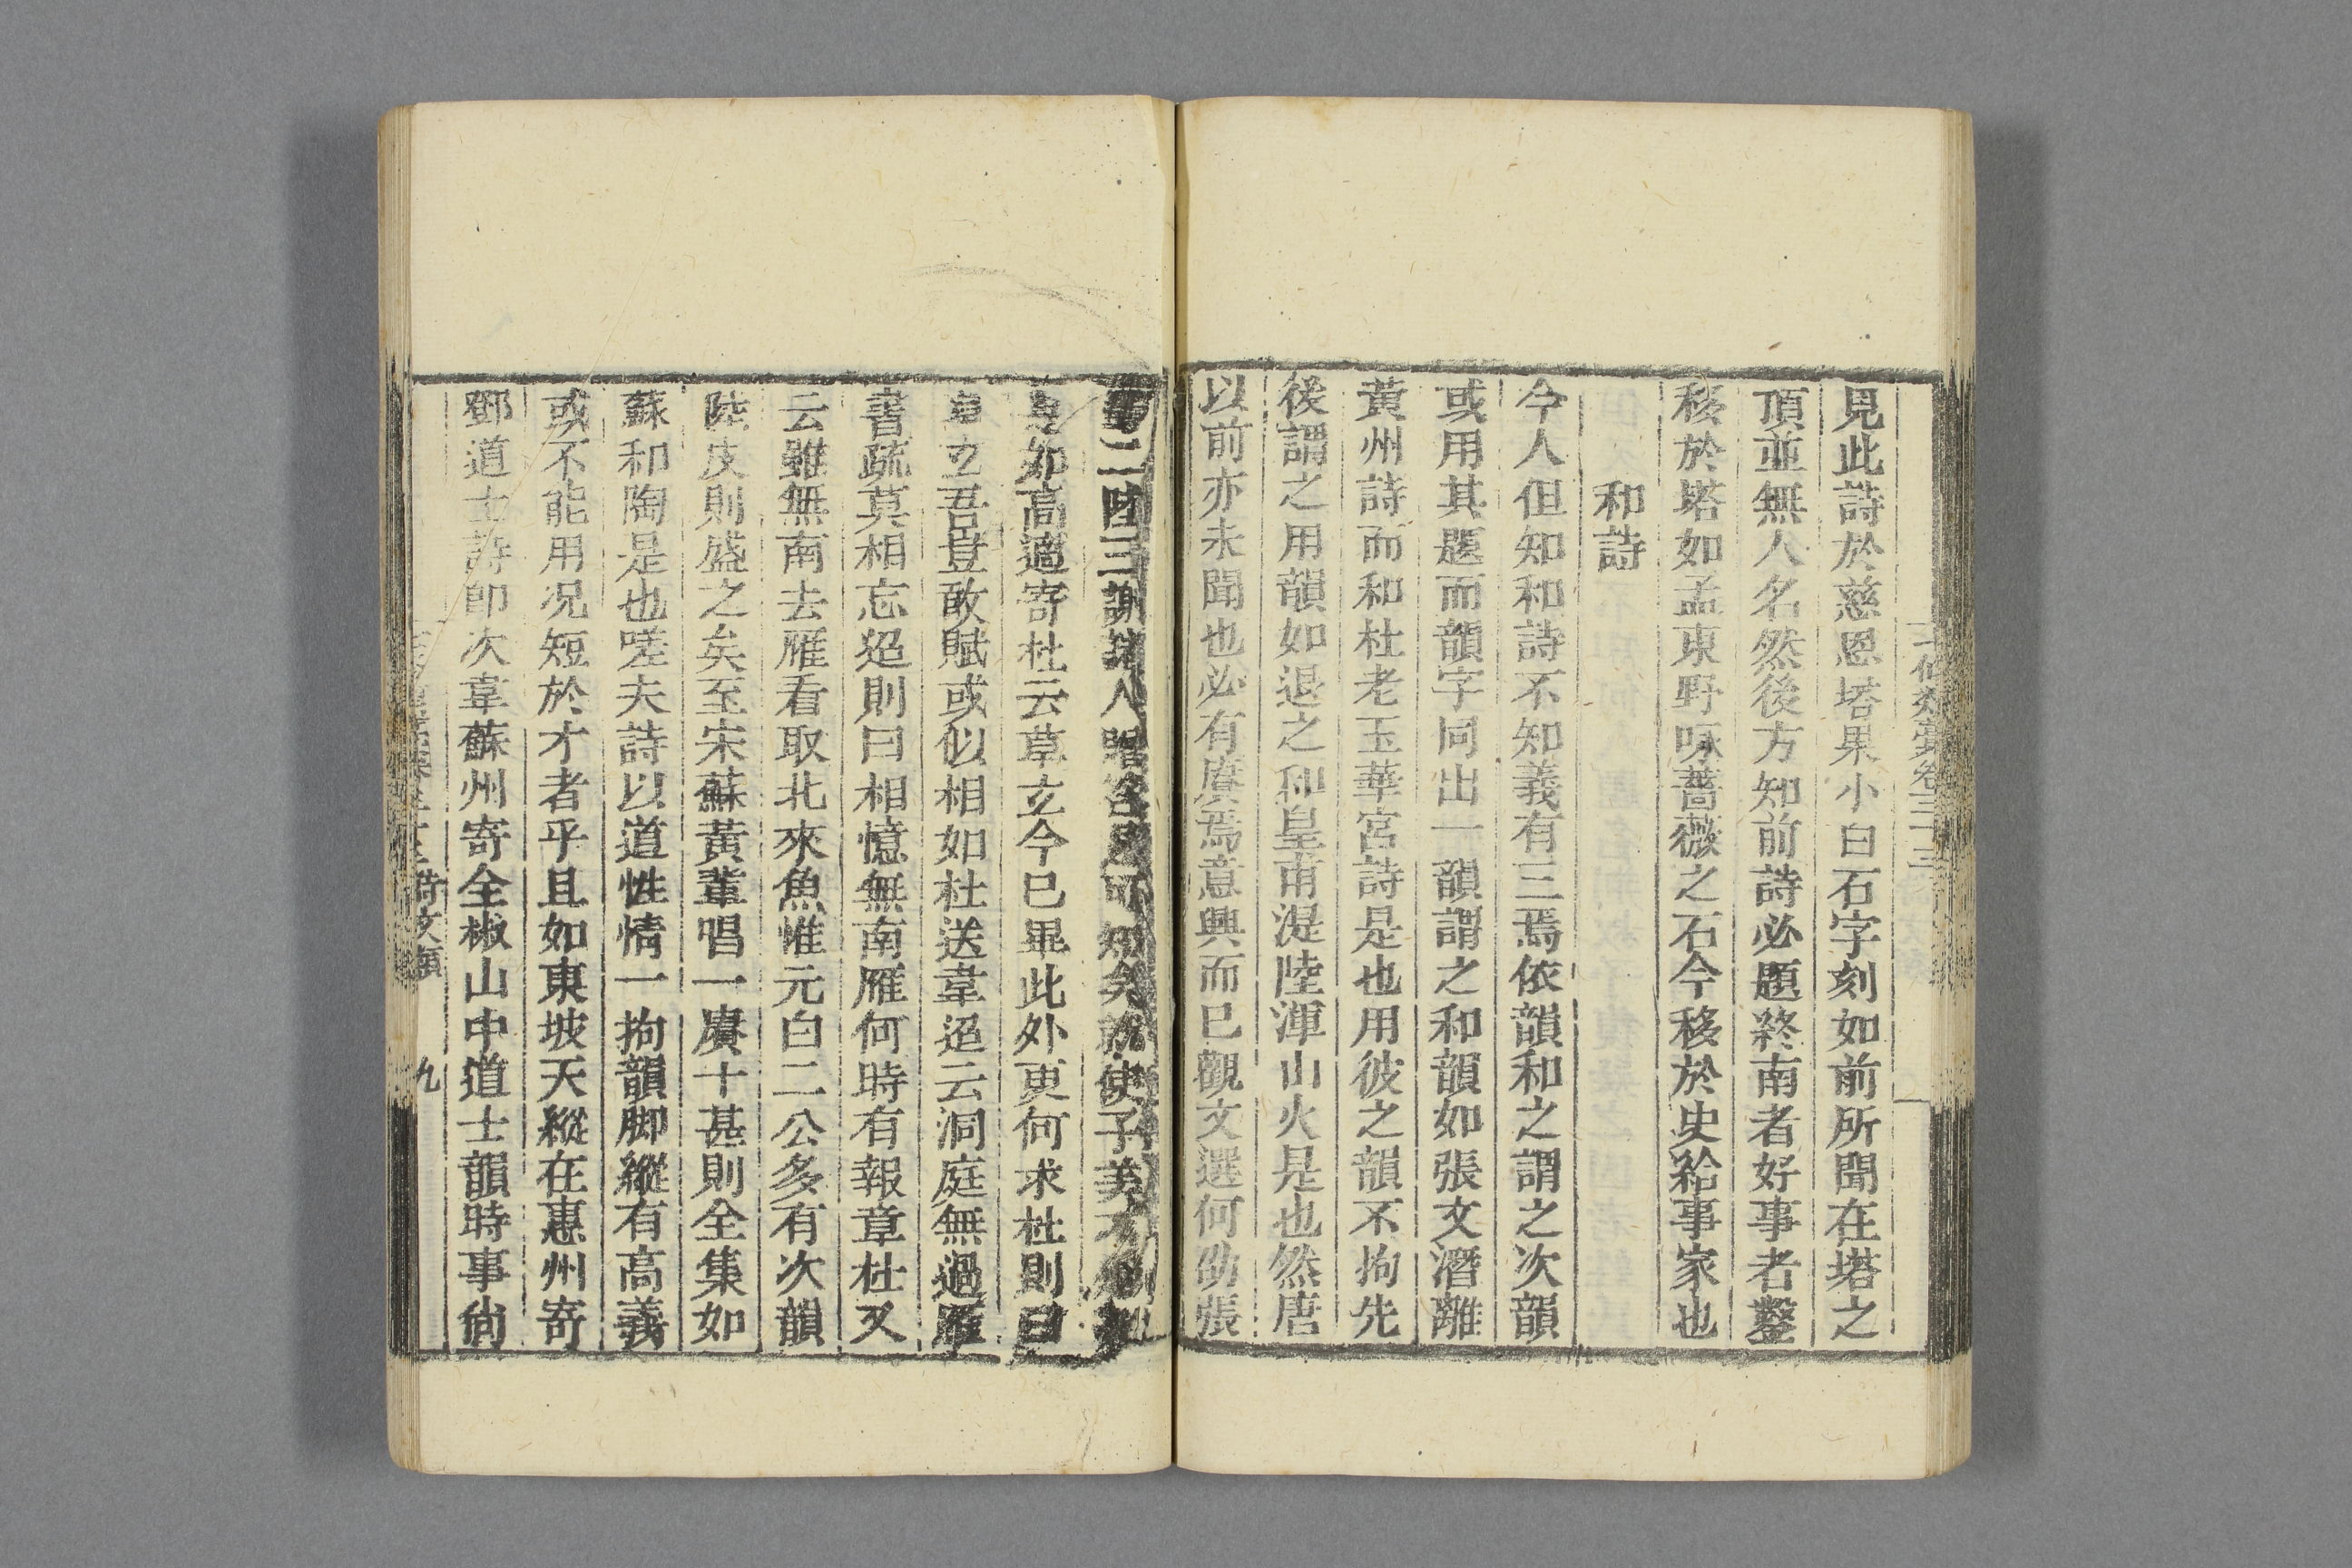 七修類藁卷三十三
見此詩於慈恩塔果小白石字刻如前所聞在塔之
頂並無人名然後方知前詩必題終南者好事者鑿
移於塔如孟東野咏薔薇之石今移於史給事家也
和詩
今人但知和詩不知義有三焉依韻和之謂之次韻
或用其題而韻字同出一韻謂之和韻如張文潛離
黃州詩而和杜老玉華宮詩是也用彼之韻不拘先
後謂之用韻如退之和皇甫湜陸渾山火是也然唐
以前亦未聞也必有賡焉意興而已觀文選何劭張
二陸三謝諸人贈答可知矣 使子美不
如高適寄杜云草玄今已畢此外更何求杜則曰
草玄吾豈敢賦或似相如杜送韋迢云洞庭無過雁
書疏莫相忘迢則曰相憶無南雁何時有報章杜又
云雖無南去雁看取北來魚惟元白二公多有次韻
陸皮則盛之矣至宋蘇黃輩唱一賡十甚則全集如
蘇和陶是也嗟夫詩以道性情一拘韻脚縱有高義
或不能用况短於才者乎且如東坡天縱在惠州寄
鄧道士詩卽次韋蘇州寄全椒山中道士韻時事尙
詩文類
九